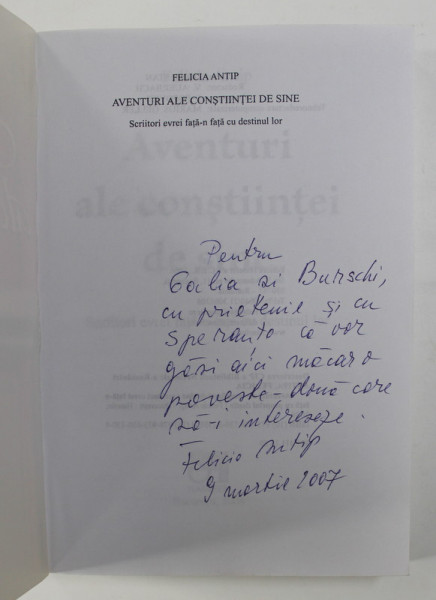 FELICIA ANTIP
AVENTURI ALE CONȘTIINȚEI DE SINE
Scriitori evrei față-n față cu destinul lor
Aventuri
ale conștiinței
de sine
Pentru
Galia și Burschi,
cu prietenie și cu
speranța că vor
găsi aici măcar o
poveste-două care
să-i intereseze.
Felicia Antip
9 martie 2007